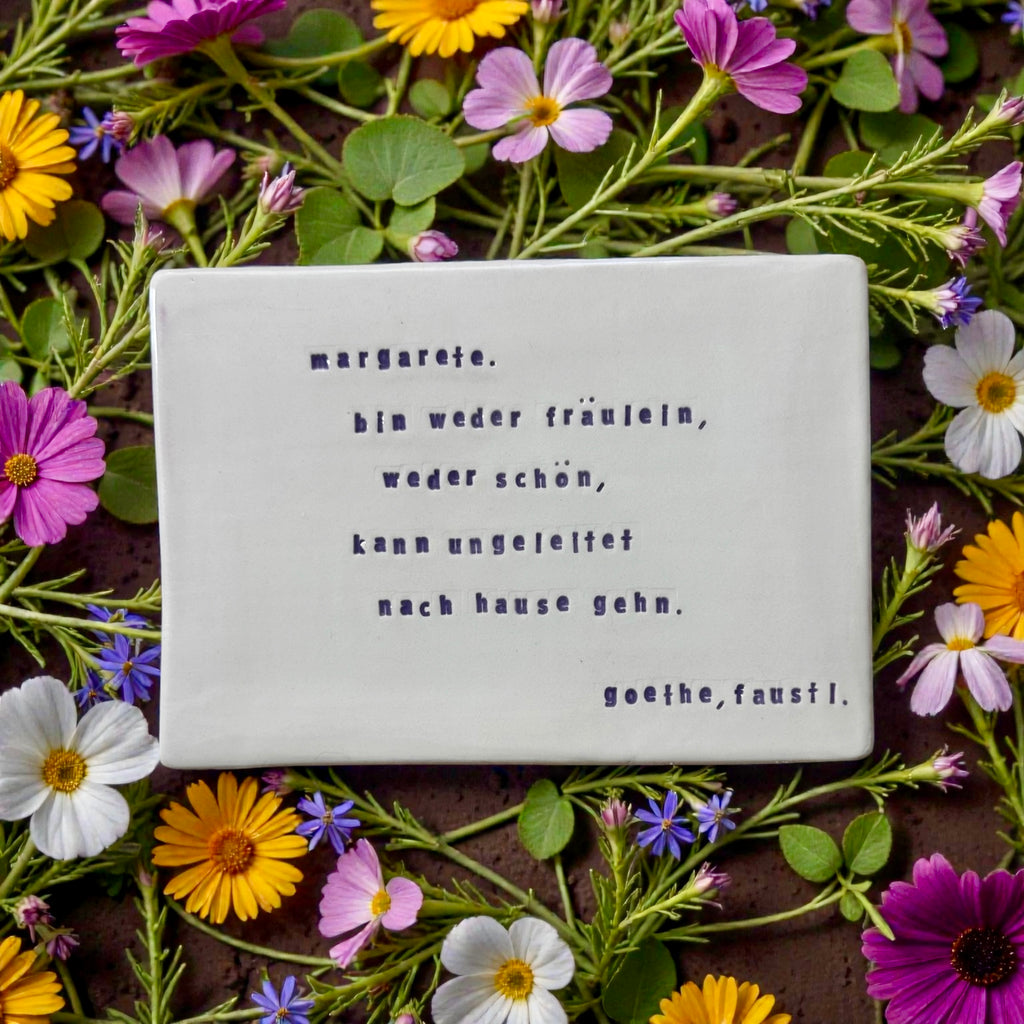 margarete.
bin weder fräulein,
weder schön,
kann ungeleitet
nach hause gehn.
goethe, faust I.